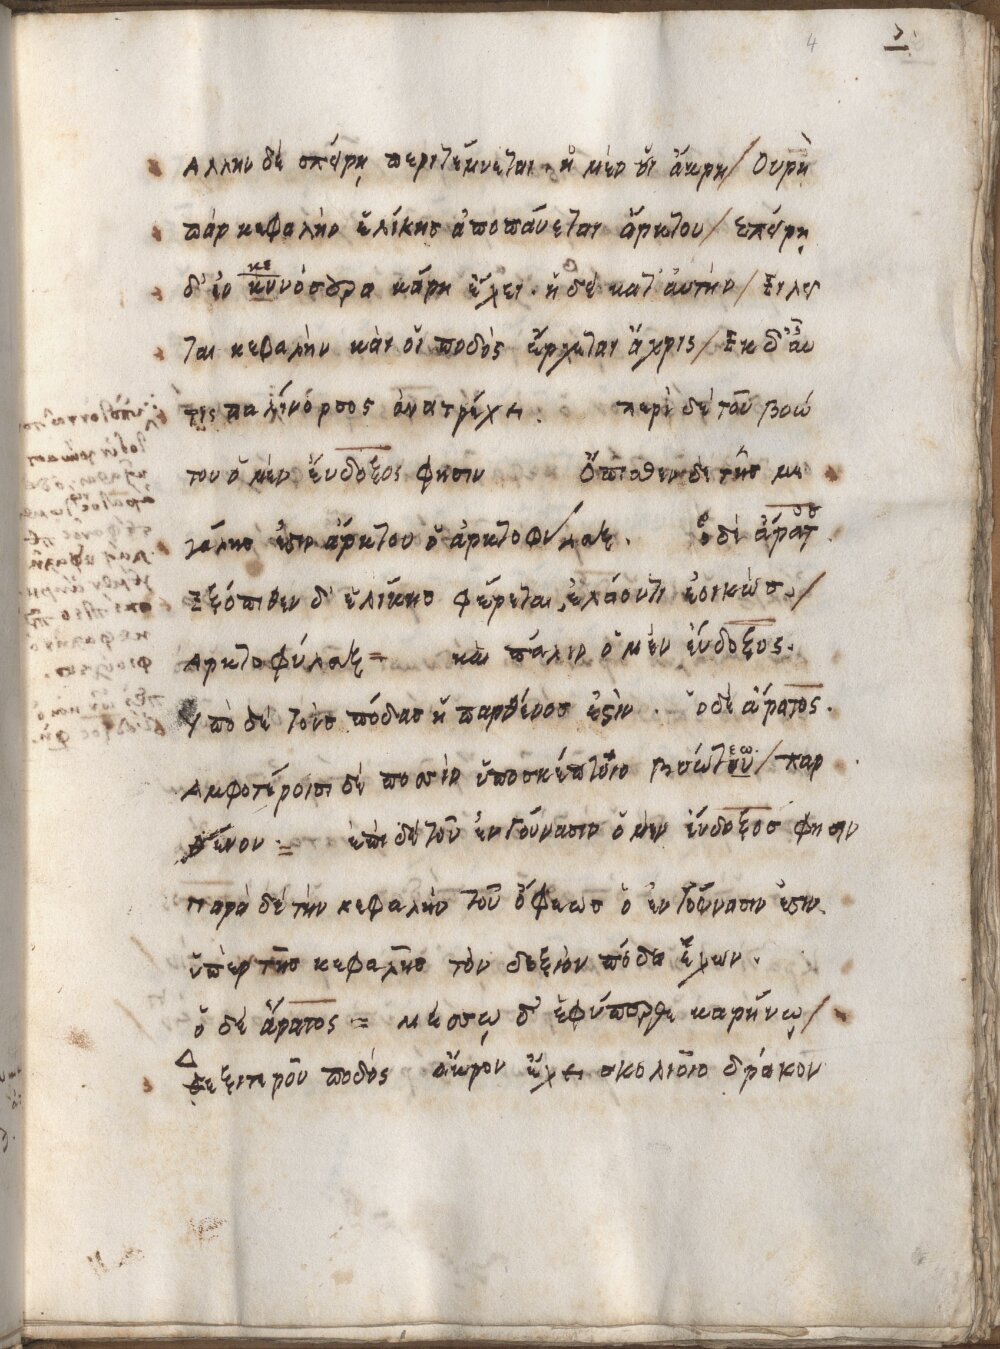 4
Αλλην δὲ σπείρῃ περιτέμνεται. ἡ μέν οἱ ἄκρη / Ουρὴ
πὰρ κεφαλὴν ἑλίκης ἀποπαύεται ἄρκτου / Σπείρῃ
δ' ἐν κυνόσουρα κάρη ἔχει. ἡ δὲ κατ' αὐτὴν / Εἱλεῖ
ται κεφαλὴν καὶ οἱ ποδὸς ἔρχεται ἄχρις / Εκ δ' αὖ
τις παλίνορσος ἀνατρέχει. περὶ δὲ τοῦ βοώ
του ὁ μὲν ἔυδοξος φησιν Ὄπισθεν δὲ τῆς με
γάλης ἐστιν ἄρκτου ὁ ἀρκτοφύλαξ. ὁ δὲ ἄρατος
Εξόπιθεν δ' ἑλίκης φέρεται ἐλάοντι ἐοικὼς /
Αρκτοφύλαξ = καὶ πάλιν ὁ μὲν ἔυδοξος.
Υπὸ δὲ τοὺς πόδας ἡ παρθένος ἐστὶν. ὁ δὲ ἄρατος.
Αμφοτέροισι δὲ ποσσὶν ὕποσκέπτοιο βοώτεω / παρ
θένον = ἐπὶ δὲ τοῦ ἐν γούνασιν ὁ μὲν ἔυδοξος φησιν
Παρὰ δὲ τὴν κεφαλὴν τοῦ ὄφεως ὁ ἐν γούνασιν ἐστιν
ὑπὲρ τῆς κεφαλῆς τὸν δεξιὸν πόδα ἔχων.
ὁ δὲ ἄρατος = Μέσσῳ δ' ἐφύπερθε καρήνῳ /
Δεξιτεροῦ ποδὸς ἄκρον ἔχει σκολιοῖο δράκον